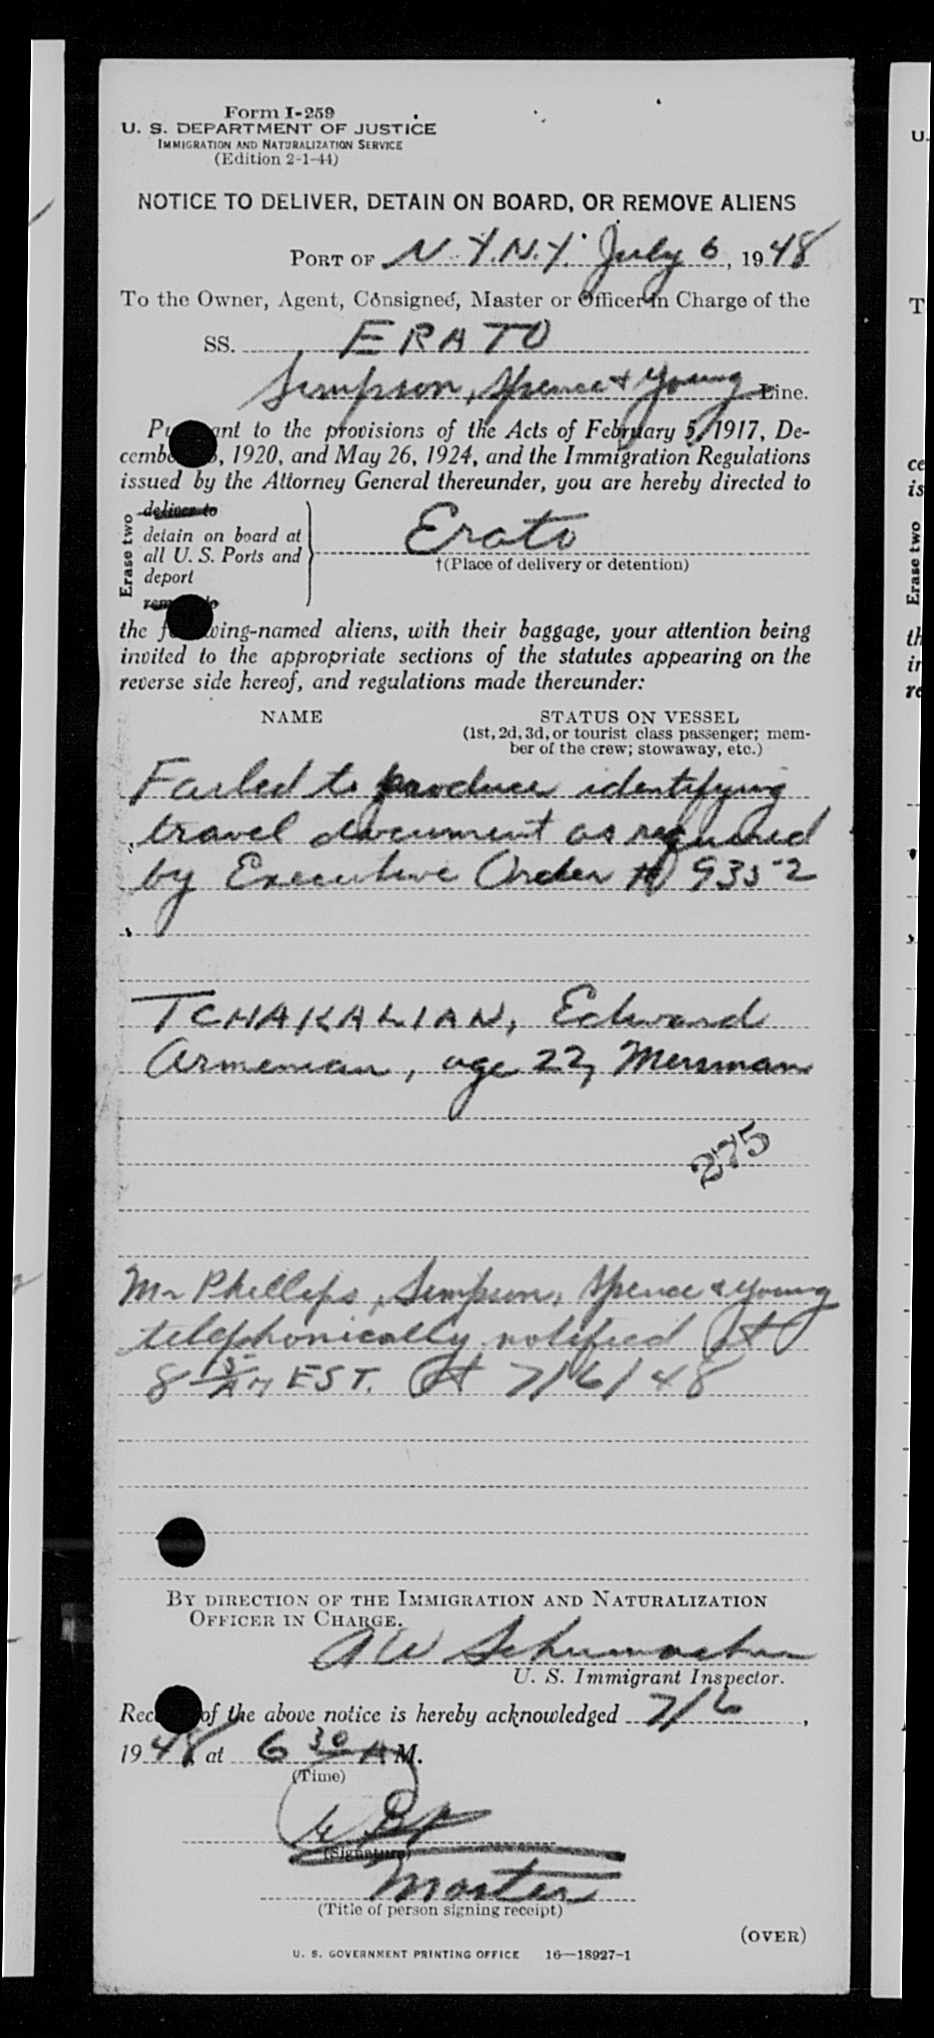 Form I-259
U. S. DEPARTMENT OF JUSTICE
IMMIGRATION AND NATURALIZATION SERVICE
(Edition 2-1-44)
NOTICE TO DELIVER, DETAIN ON BOARD, OR REMOVE ALIENS
PORT OF N.Y.N.Y. July 6, 1948
To the Owner, Agent, Consigned, Master or Officer in Charge of the
SS. ERATO
Simpson, Spence & Young Line.
ant to the provisions of the Acts of February 5, 1917, De-
cemb , 1920, and May 26, 1924, and the Immigration Regulations
issued by the Attorney General thereunder, you are hereby directed to
Erase two
deliver to
detain on board at
all U. S. Ports and
deport
Erato
†(Place of delivery or detention)
the f wing-named aliens, with their baggage, your attention being
invited to the appropriate sections of the statutes appearing on the
reverse side hereof, and regulations made thereunder:
NAME STATUS ON VESSEL
(1st, 2d, 3d, or tourist class passenger; mem-
ber of the crew; stowaway, etc.)
Failed to produce identifying
travel document as required
by Executive Order # 9352
TCHAKALIAN, Edward
Armenian, age 22, Messman
275
Mr Phillips, Simpson, Spence & Young
telephonically notified at
8 15 AM EST. 7/6/48
BY DIRECTION OF THE IMMIGRATION AND NATURALIZATION
OFFICER IN CHARGE.
A W Schumacher
U. S. Immigrant Inspector.
Rec of the above notice is hereby acknowledged 7/6,
1948 at 6 30 A M.
(Time)
(Signature)
Master
(Title of person signing receipt)
(OVER)
U. S. GOVERNMENT PRINTING OFFICE 16—18927-1